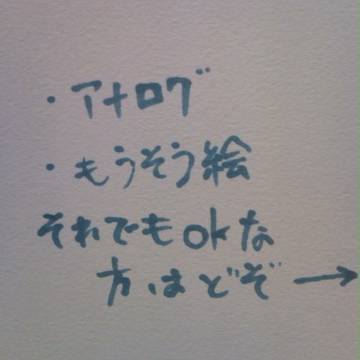 ・アナログ
・もうそう絵
それでもokな
方はどぞ→